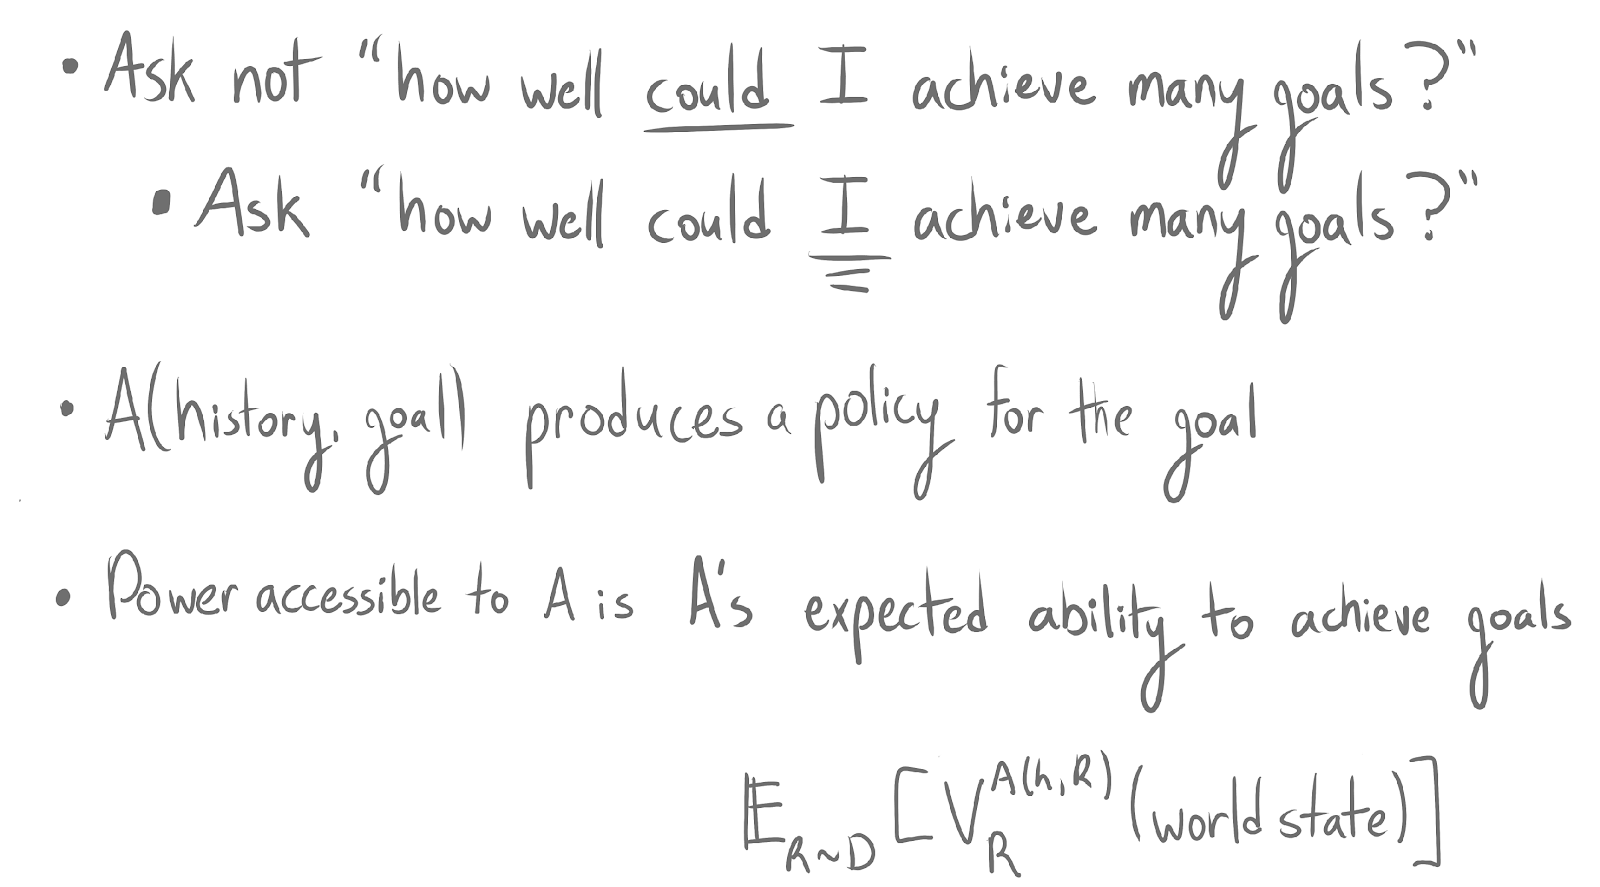 • Ask not "how well could I achieve many goals?"
• Ask "how well could I achieve many goals?"
• A(history, goal) produces a policy for the goal
• Power accessible to A is A's expected ability to achieve goals
𝔼_{R~D} [V_R^{A(h,R)} (world state)]